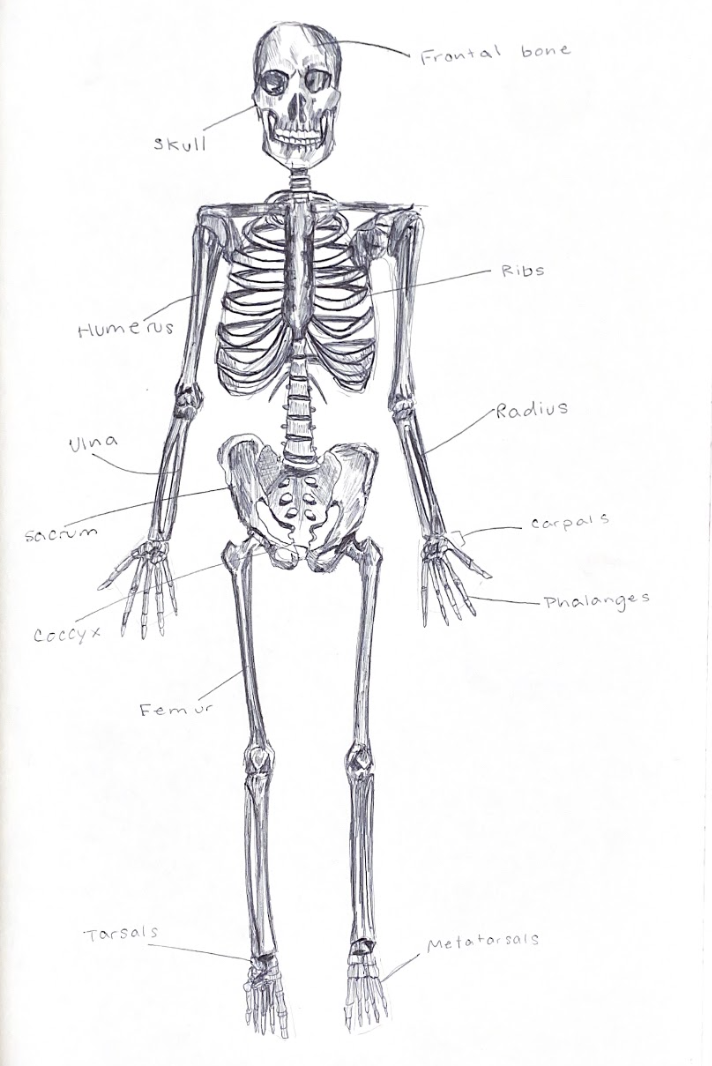 Frontal bone
Skull
Ribs
Humerus
Radius
Ulna
Sacrum
Carpals
Phalanges
Coccyx
Femur
Tarsals
Metatarsals